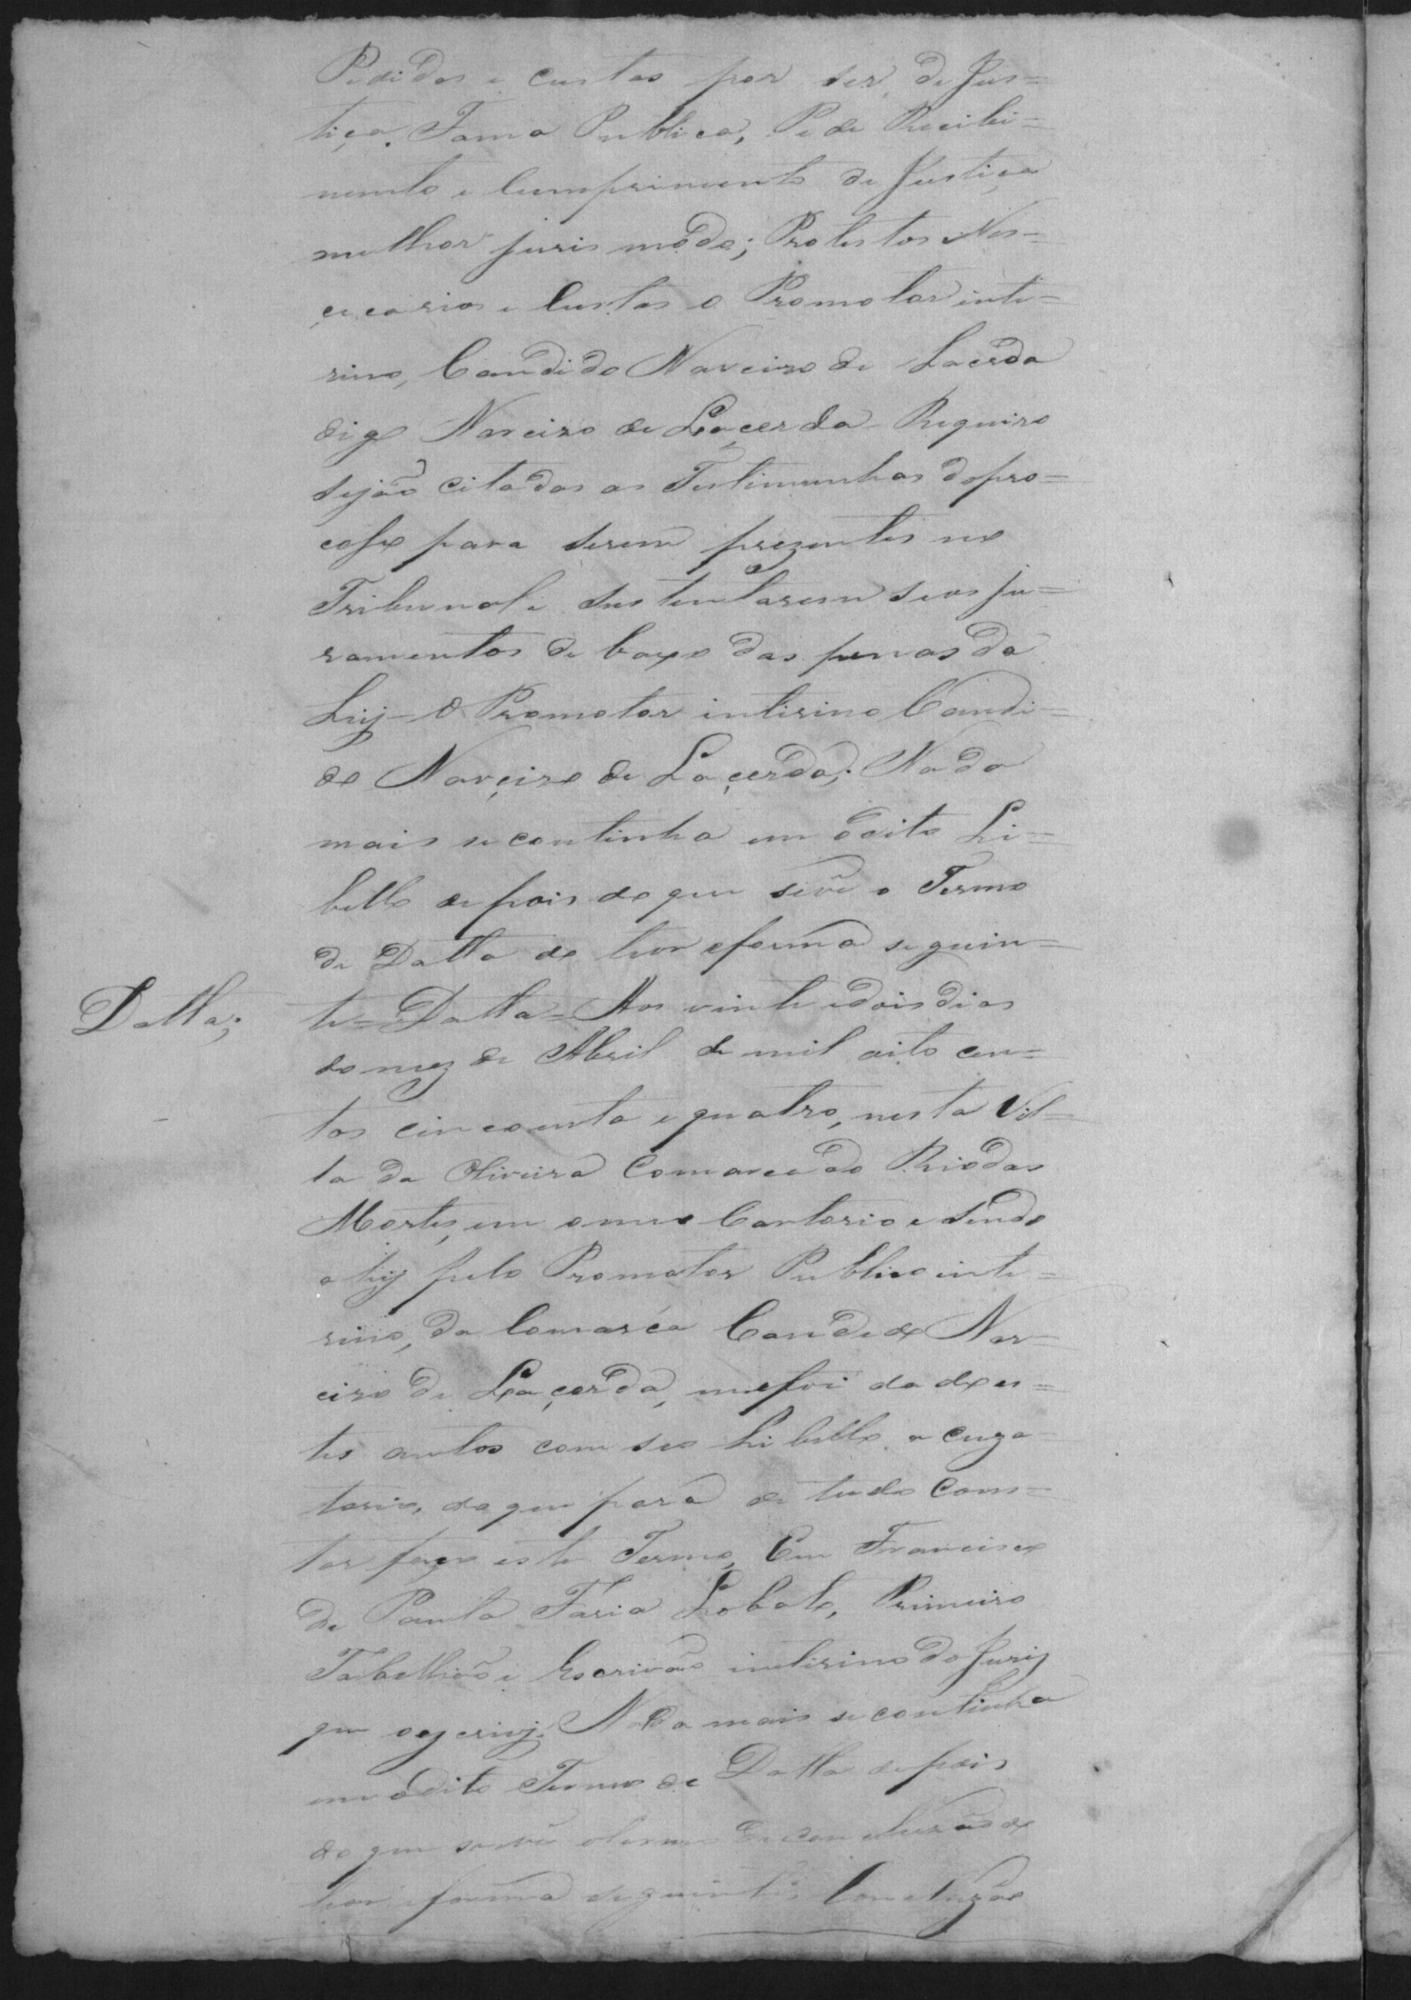 Pedidos e custas por ser de Jus=
tiça. Fama Publica, Pede Recibi=
mento e Cumprimento de Justiça
melhor juris módo; Protestos Nes=
çecarios e Custas o Promotor inte=
rino, Candido Narcizo de Lacerda
digo Narcizo de Laçerda Requeiro
sejão citadas as Testimunhas do pro=
cesso para serem prezentes no
Tribunal e sustentarem seos ju=
ramentos de baxo das penas da
Leij - O Promotor interino Candi=
do Narçizo de Laçerda; Nada
mais se continha em o dito Li=
bello depois do que se vê o Termo
de Datta do theor e forma seguin=
Datta;
te = Datta = Aos vinte e dois dias
do mez de Abril de mil oito cen=
tos cincoenta e quatro, nesta Vil=
la da Oliveira Comarca do Rio das
Mortes, em o meo Cartorio e sendo
ahij pelo Promotor Publico inte=
rino, da Comarca Candido Nar=
cizo de Laçerda, me foi dado es=
tes autos com seo Libello acuza=
torio, do que para de tudo Cons=
tar faço este Termo, Eu Francisco
de Paula Faria Lobato, Primeiro
Tabellião e Escrivão interino do Jurij
que o escrivij. Nada mais se continha
em o dito Termo de Datta depois
do que se vê o termo de concluzão do
theor e forma seguinte; Concluzão